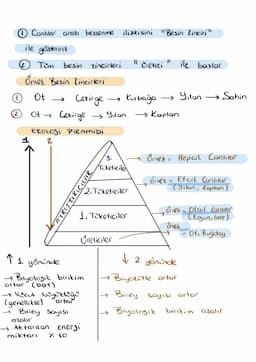 ① Canlılar arası beslenme ilişkisini "Besin Zinciri"
ile gösterilir
② Tüm besin zincirleri "üretici" ile başlar
Örnek Besin Zincirleri
① Ot → Çekirge → Kurbağa → Yılan → Şahin
② Ot → Çekirge → Yılan → Kaplan
EKOLOJİ PİRAMİDİ
1 2
AYRIŞTIRICILAR
3. Tüketiciler
Örnek = Hepçil Canlılar
2. Tüketiciler
Örnek = Etçil Canlılar
(Yılan, Kaplan)
1. Tüketiciler
Örnek = Otçil Canlılar
(Koyun, İnek)
Üreticiler
Örnek
= Ot, Buğday
↑ 1 yönünde
→ Biyolojik birikim
artar (DDT)
→ Vücut büyüklüğü
(genellikle) artar
→ Birey sayısı
azalır
→ Aktarılan enerji
miktarı % 10
↓ 2 yönünde
→ Biyokütle artar
→ Birey sayısı artar
→ Biyolojik birikim azalır